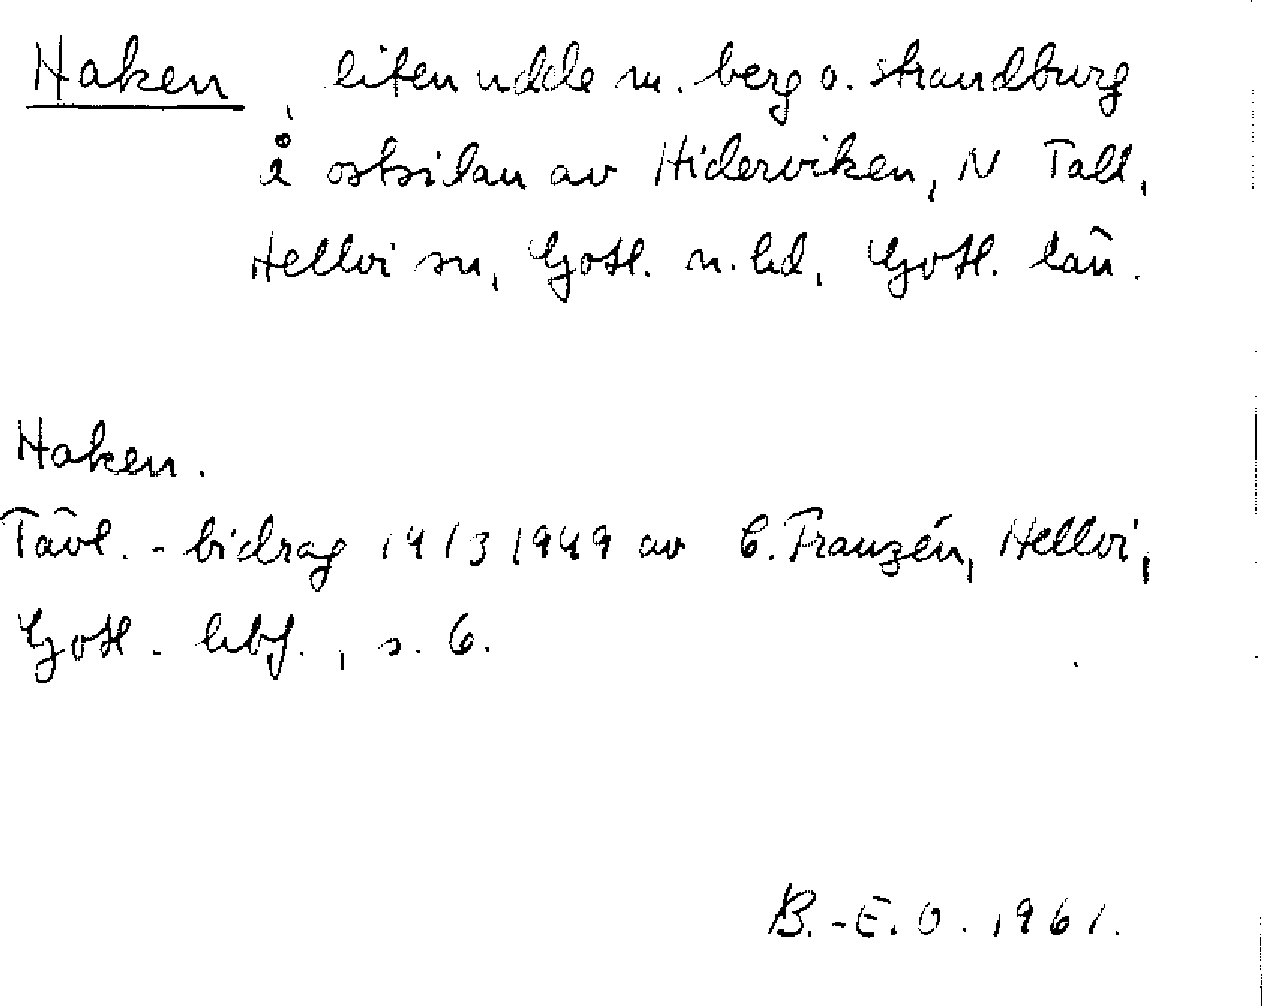 Haken, liten udde m. berg o. strandburg
å ostsidan av Hiderviken, N Täll.,
Hellvi sn, Gotl. n. hd, Gotl. län.
Haken.
Tävl.-bidrag 14/3 1949 av C. Franzén, Hellvi,
Gotl. hbf., s. 6.
B.-E. O. 1961.